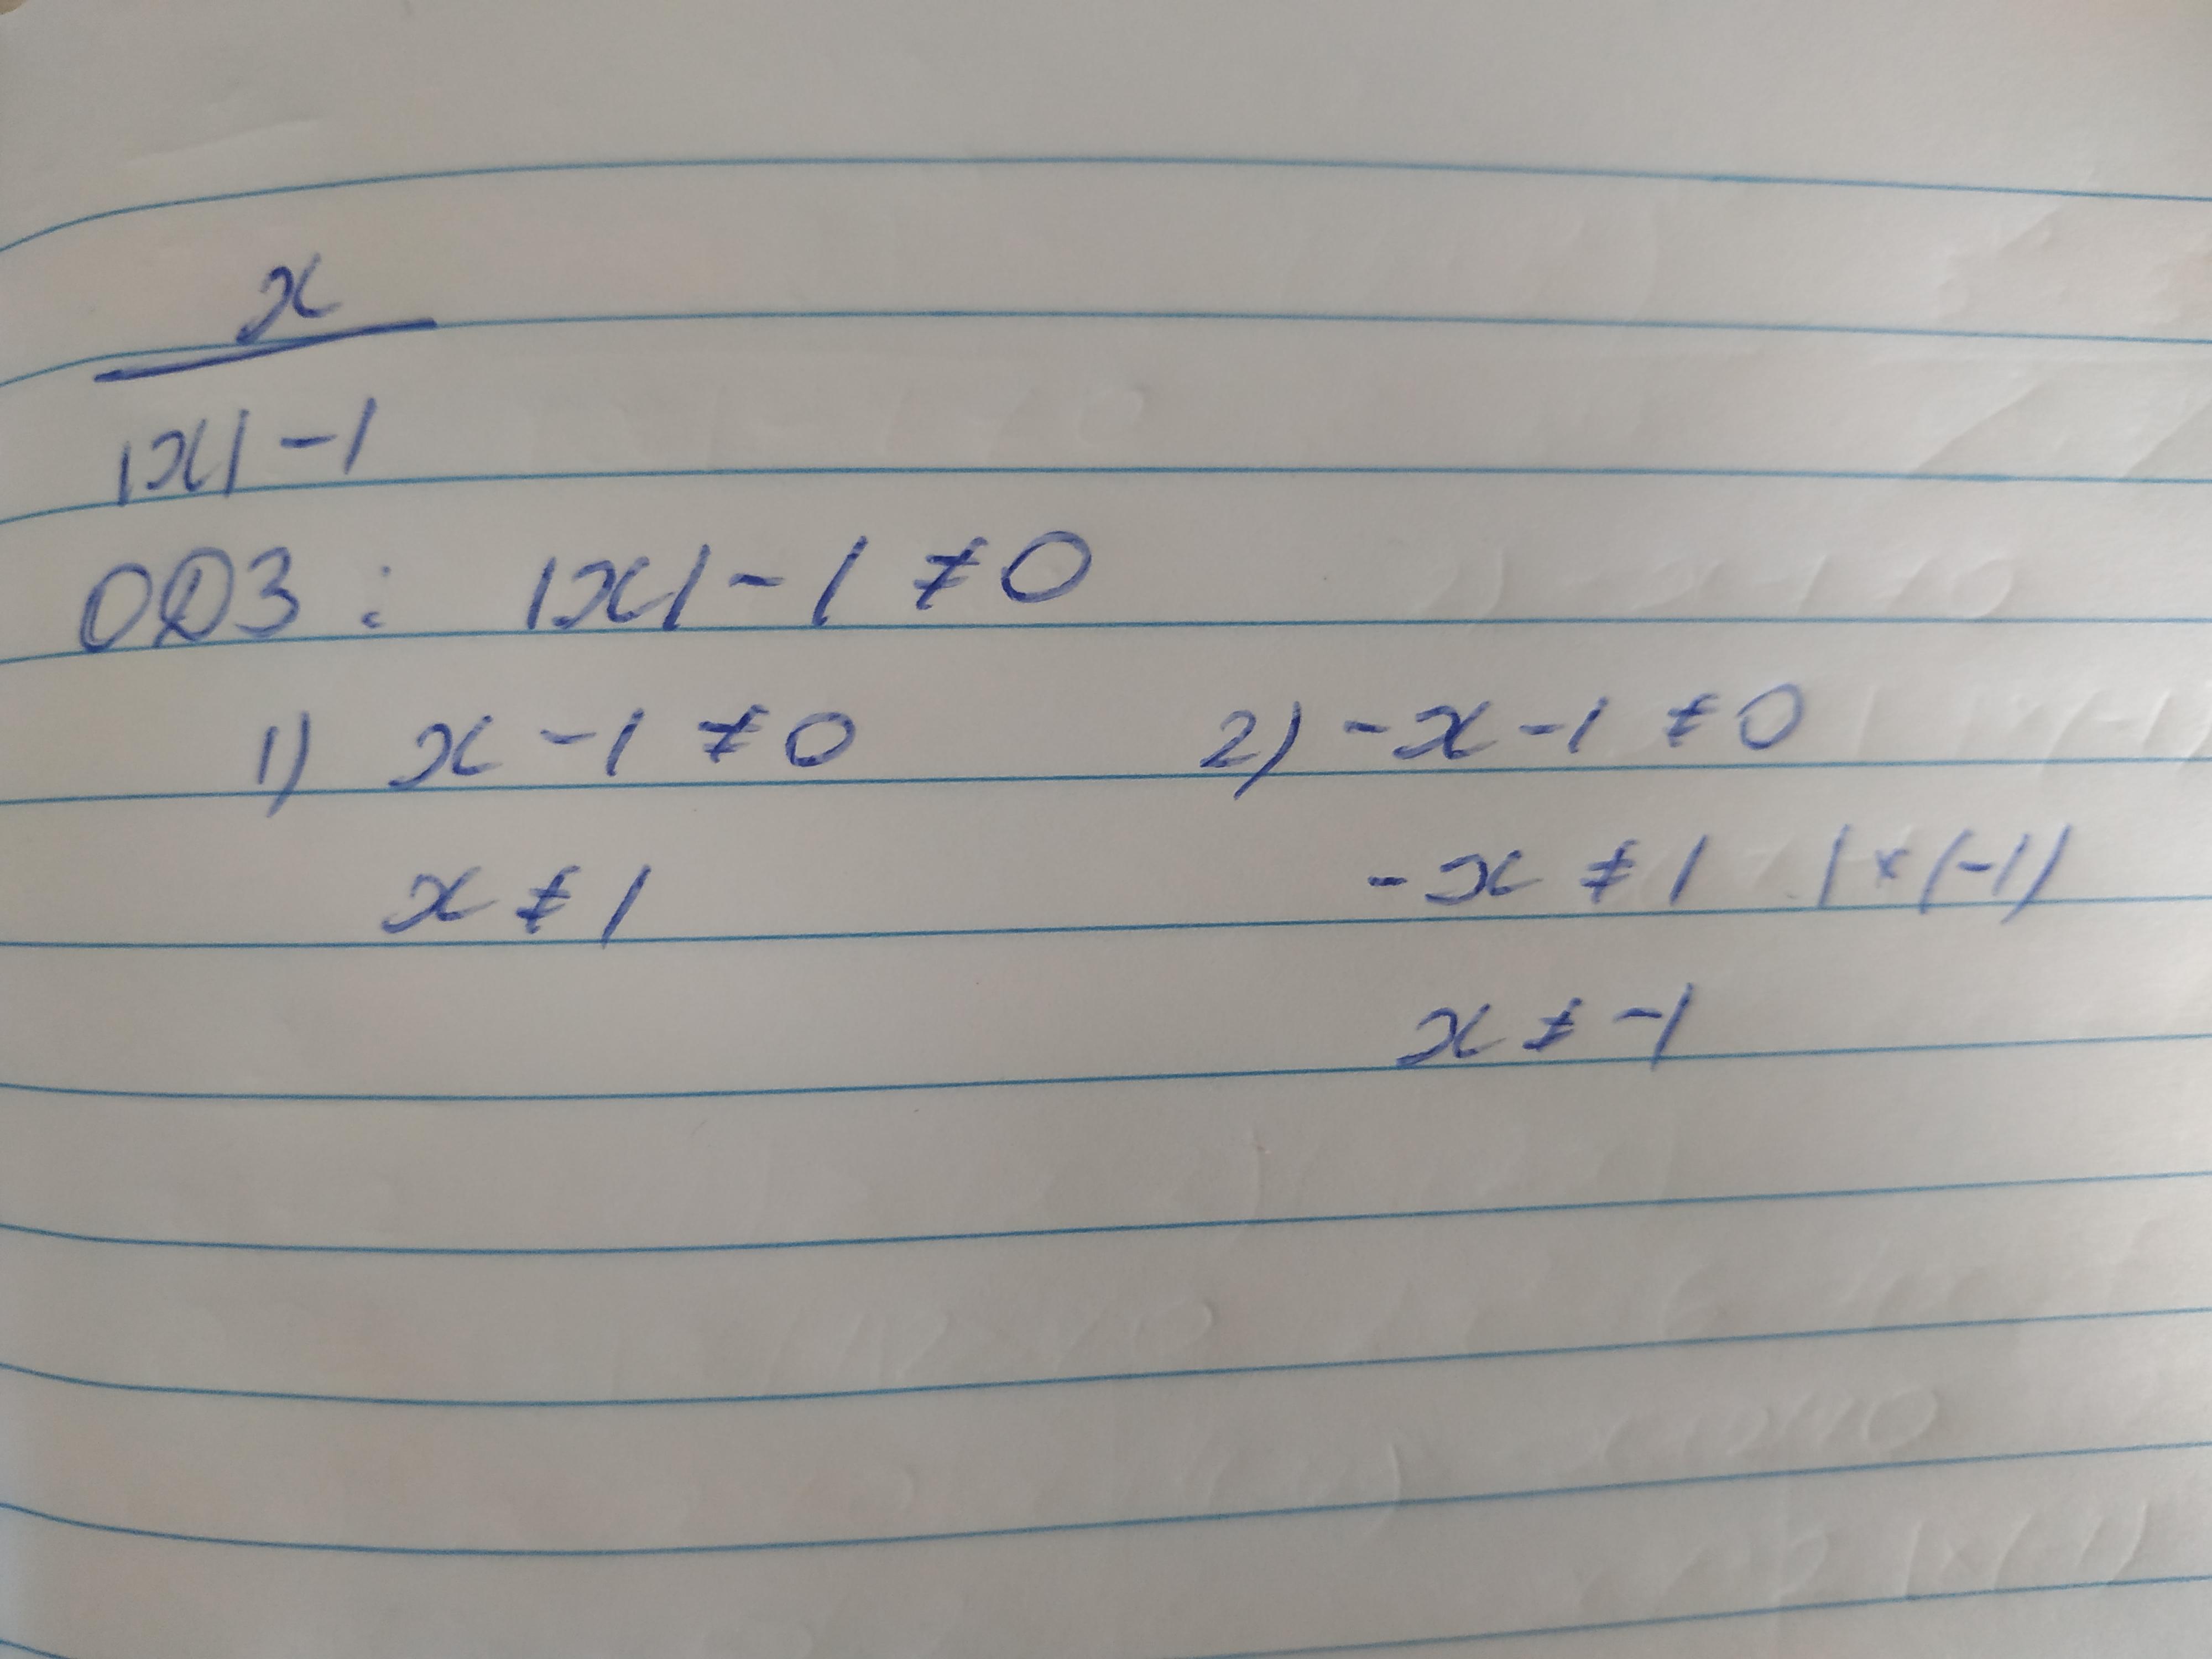 x
|x| - 1
ОДЗ: |x| - 1 ≠ 0
1) x - 1 ≠ 0 2) -x - 1 ≠ 0
x ≠ 1 -x ≠ 1 | × (-1)
x ≠ -1